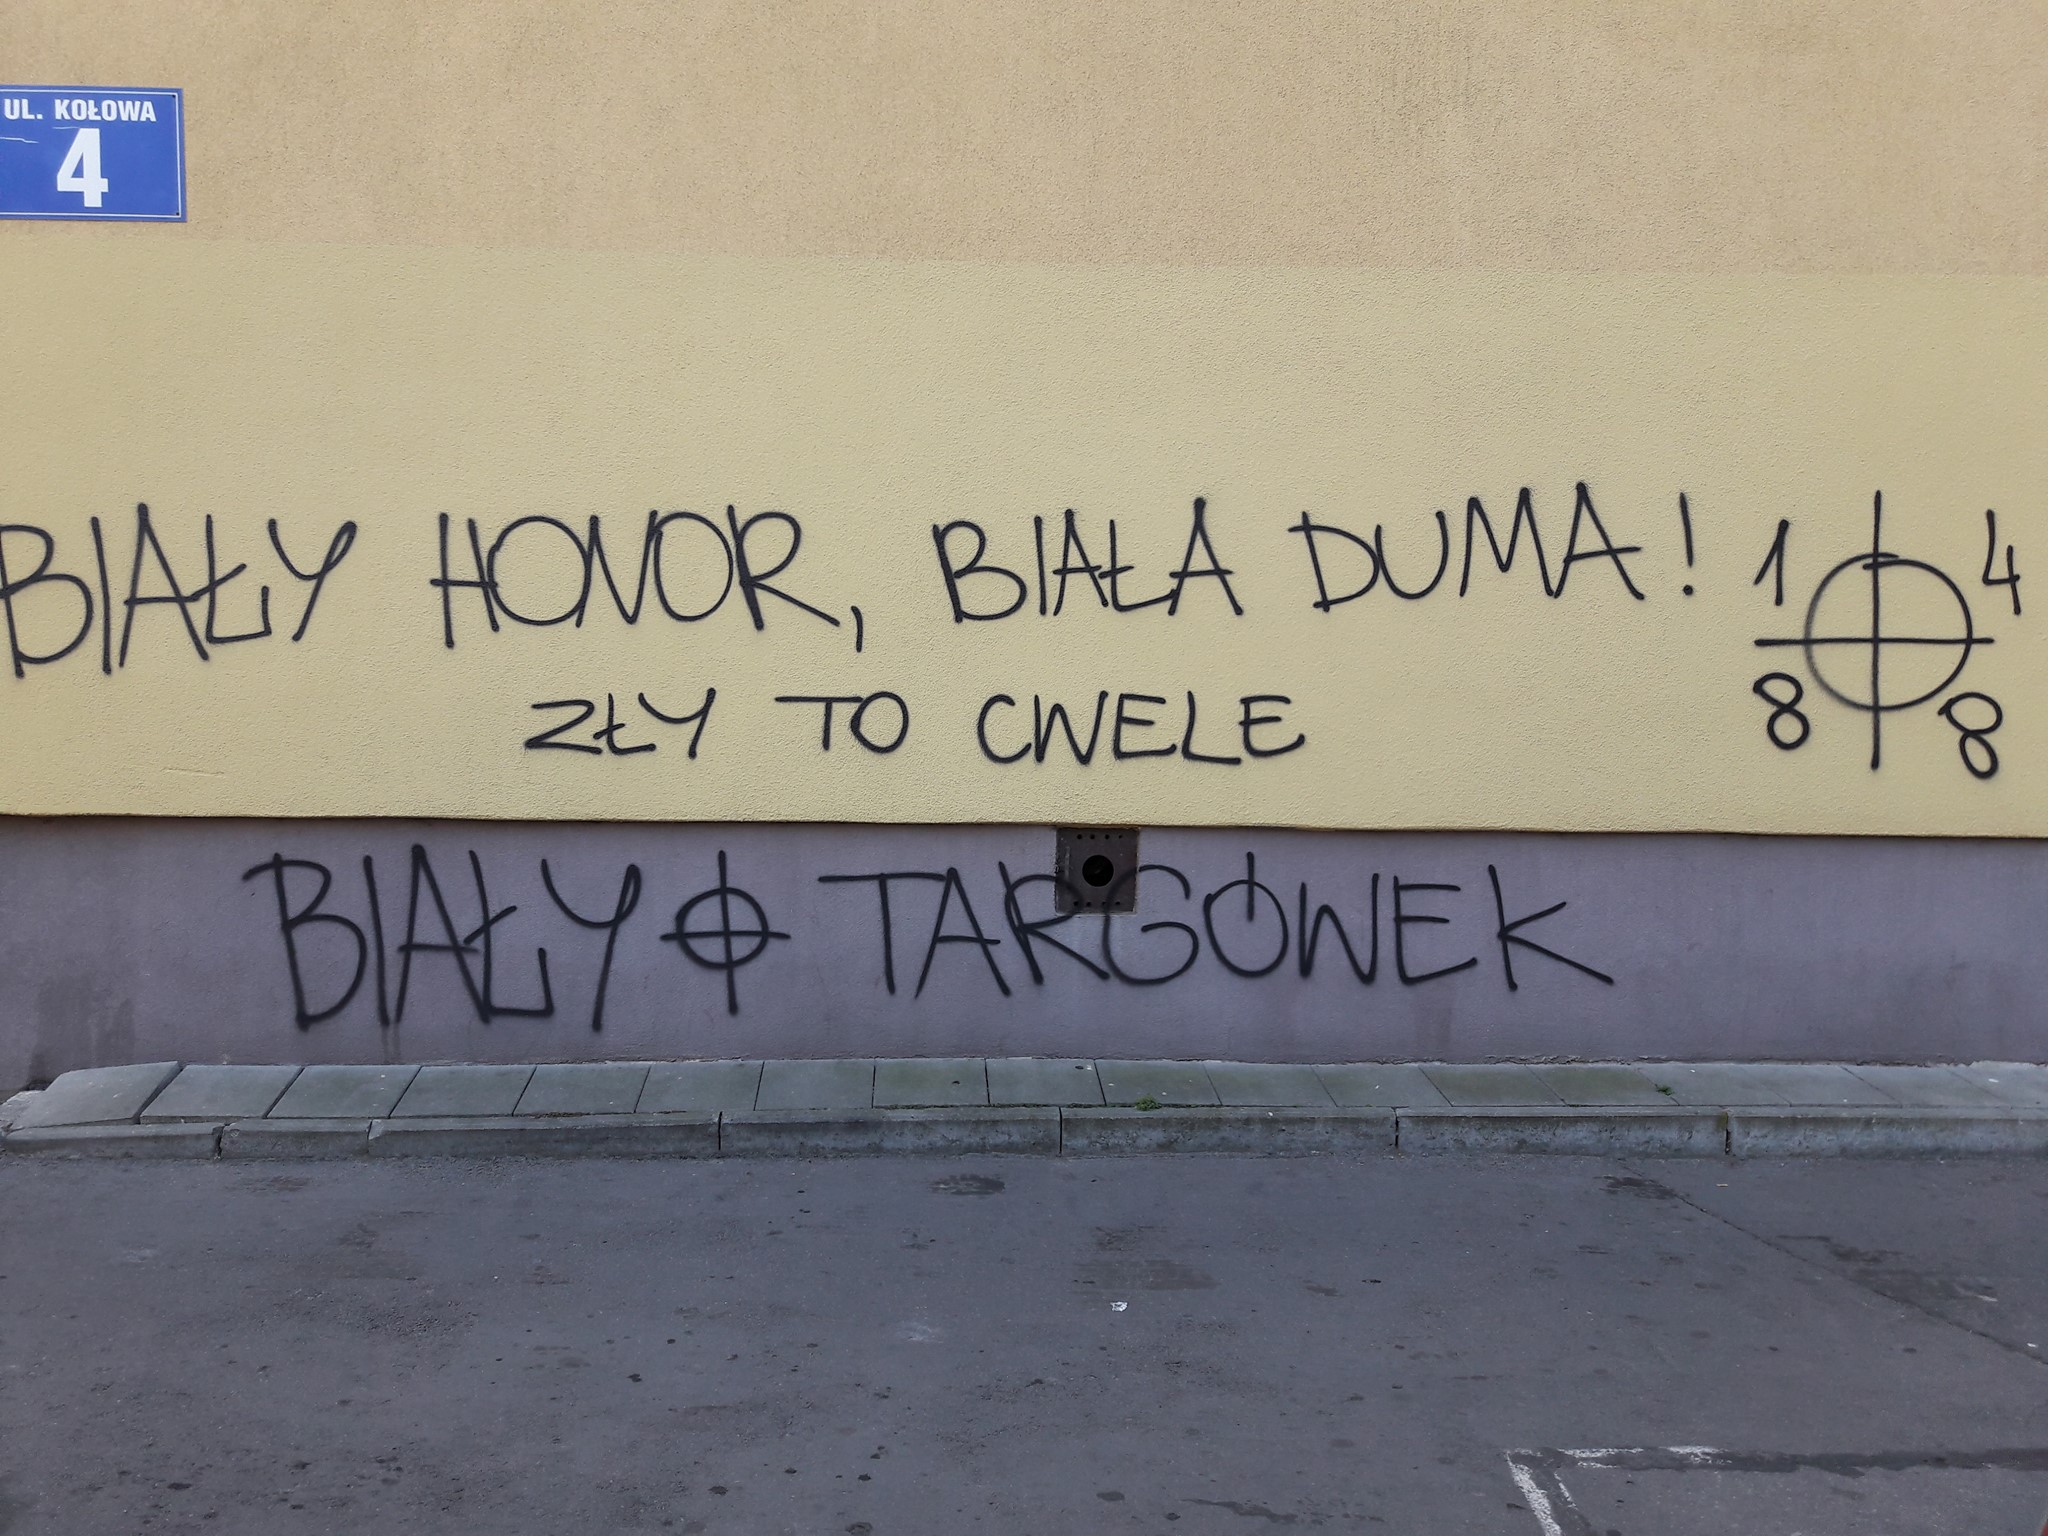 UL. KOŁOWA
4
BIAŁY HONOR, BIAŁA DUMA! 14
88
ZŁY TO CWELE
BIAŁY TARGÓWEK